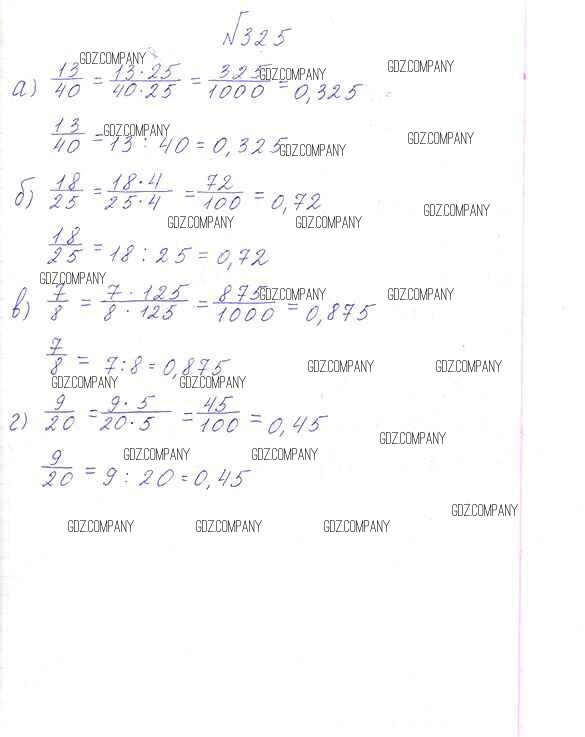 №325
GDZ.COMPANY
GDZ.COMPANY GDZ.COMPANY
а) 13/40 = 13·25/40·25 = 325/1000 = 0,325
GDZ.COMPANY GDZ.COMPANY GDZ.COMPANY
13/40 = 13 : 40 = 0,325
б) 18/25 = 18·4/25·4 = 72/100 = 0,72
GDZ.COMPANY GDZ.COMPANY GDZ.COMPANY
18/25 = 18 : 25 = 0,72
GDZ.COMPANY GDZ.COMPANY GDZ.COMPANY
в) 7/8 = 7·125/8·125 = 875/1000 = 0,875
7/8 = 7:8 = 0,875
GDZ.COMPANY GDZ.COMPANY
GDZ.COMPANY GDZ.COMPANY
г) 9/20 = 9·5/20·5 = 45/100 = 0,45
GDZ.COMPANY
GDZ.COMPANY GDZ.COMPANY
9/20 = 9 : 20 = 0,45
GDZ.COMPANY
GDZ.COMPANY GDZ.COMPANY GDZ.COMPANY